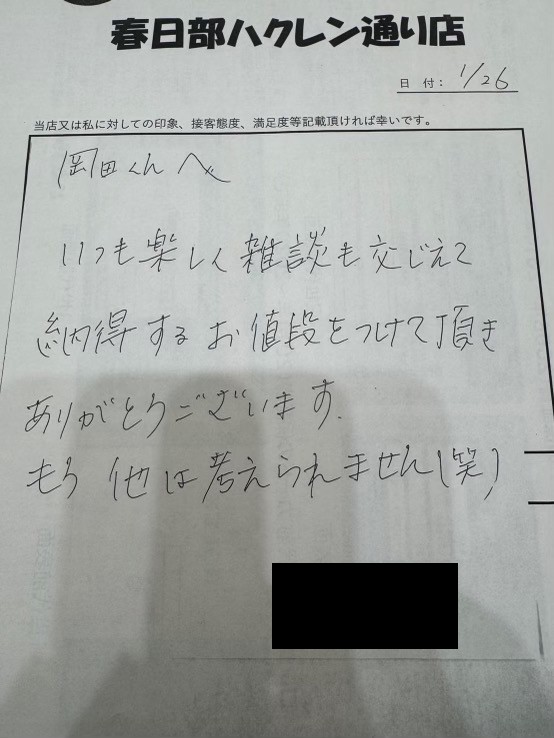 春日部ハクレン通り店
日 付： 1/26
当店又は私に対しての印象、接客態度、満足度等記載頂ければ幸いです。
岡田くんへ
いつも楽しく雑談も交じえて
納得するお値段をつけて頂き
ありがとうございます.
もう他は考えられません(笑)